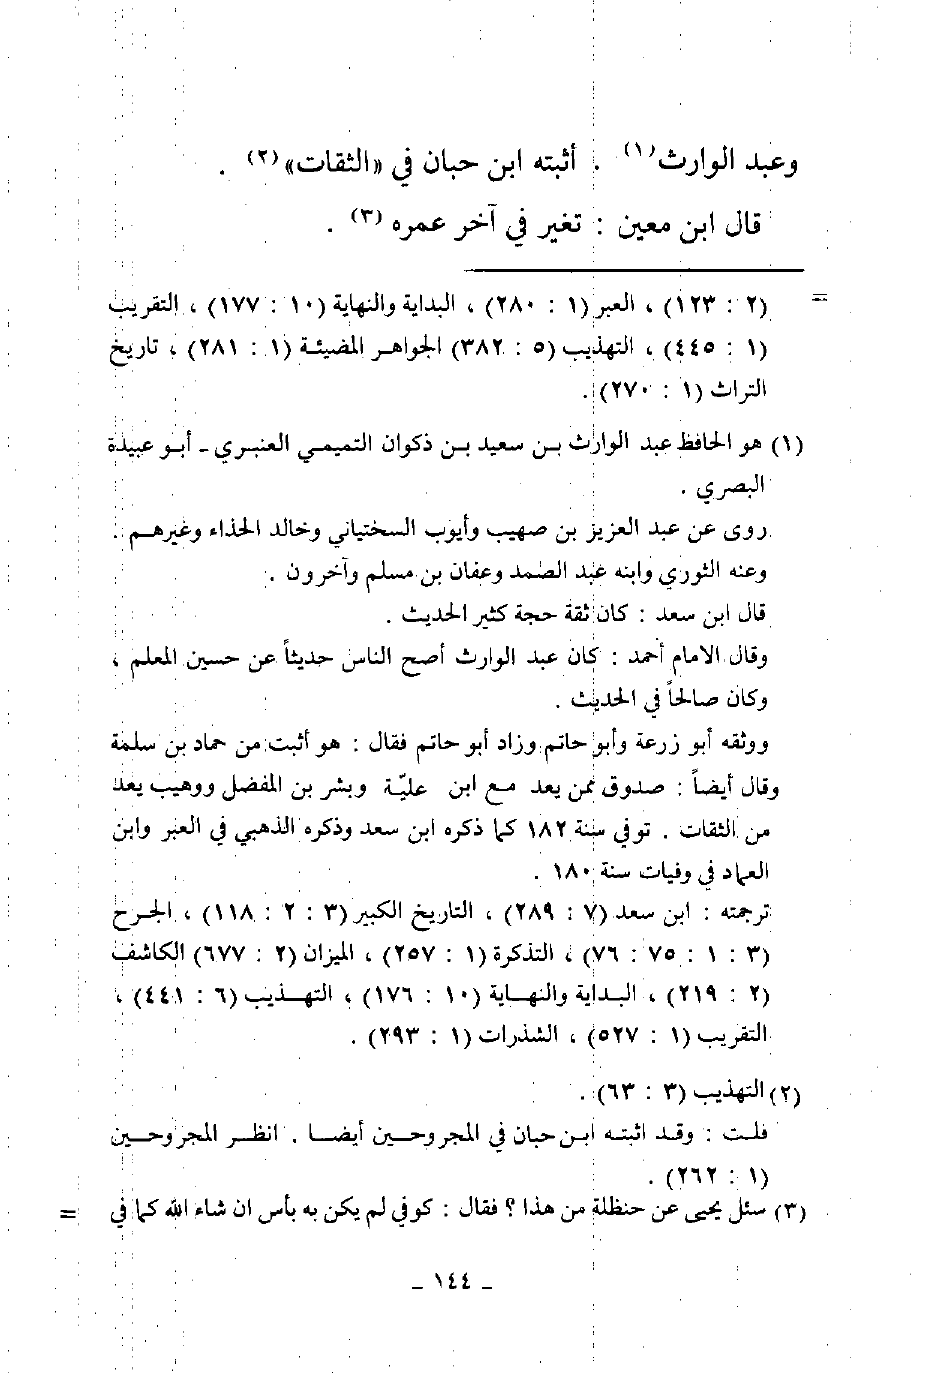 وعبد الوارث(١) . أثبته ابن حبان في «الثقات»(٢) .
قال ابن معين : تغير في آخر عمره (٣) .
= (٢ : ١٢٣) ، العبر (١ : ٢٨٠) ، البداية والنهاية (١٠ : ١٧٧) ، التقريب
(١ : ٤٤٥) ، التهذيب (٥ : ٣٨٢) الجواهر المضيئة (١ : ٢٨١) ، تاريخ
التراث (١ : ٢٧٠) .
(١) هو الحافظ عبد الوارث بن سعيد بن ذكوان التميمي العنبري - أبو عبيدة
البصري .
روى عن عبد العزيز بن صهيب وأيوب السختياني وخالد الحذاء وغيرهم .
وعنه الثوري وابنه عبد الصمد وعفان بن مسلم وآخرون .
قال ابن سعد : كان ثقة حجة كثير الحديث .
وقال الامام أحمد : كان عبد الوارث أصح الناس حديثاً عن حسين المعلم ،
وكان صالحاً في الحديث .
ووثقه أبو زرعة وأبو حاتم وزاد أبو حاتم فقال : هو أثبت من حماد بن سلمة
وقال أيضاً : صدوق ممن يعد مع ابن عليّة وبشر بن المفضل ووهيب يعد
من الثقات . توفي سنة ١٨٢ كما ذكره ابن سعد وذكره الذهبي في العبر وابن
العماد في وفيات سنة ١٨٠ .
ترجمته : ابن سعد (٧ : ٢٨٩) ، التاريخ الكبير (٣ : ٢ : ١١٨) ، الجرح
(٣ : ١ : ٧٥ : ٧٦) ، التذكرة (١ : ٢٥٧) ، الميزان (٢ : ٦٧٧) الكاشف
(٢ : ٢١٩) ، البداية والنهاية (١٠ : ١٧٦) ، التهذيب (٦ : ٤٤١) ،
التقريب (١ : ٥٢٧) ، الشذرات (١ : ٢٩٣) .
(٢) التهذيب (٣ : ٦٣) .
قلت : وقد اثبته ابن حبان في المجروحين أيضا . انظر المجروحين
(١ : ٢٦٢) .
(٣) سئل يحيى عن حنظلة من هذا ؟ فقال : كوفي لم يكن به بأس ان شاء الله كما في =
- ١٤٤ -